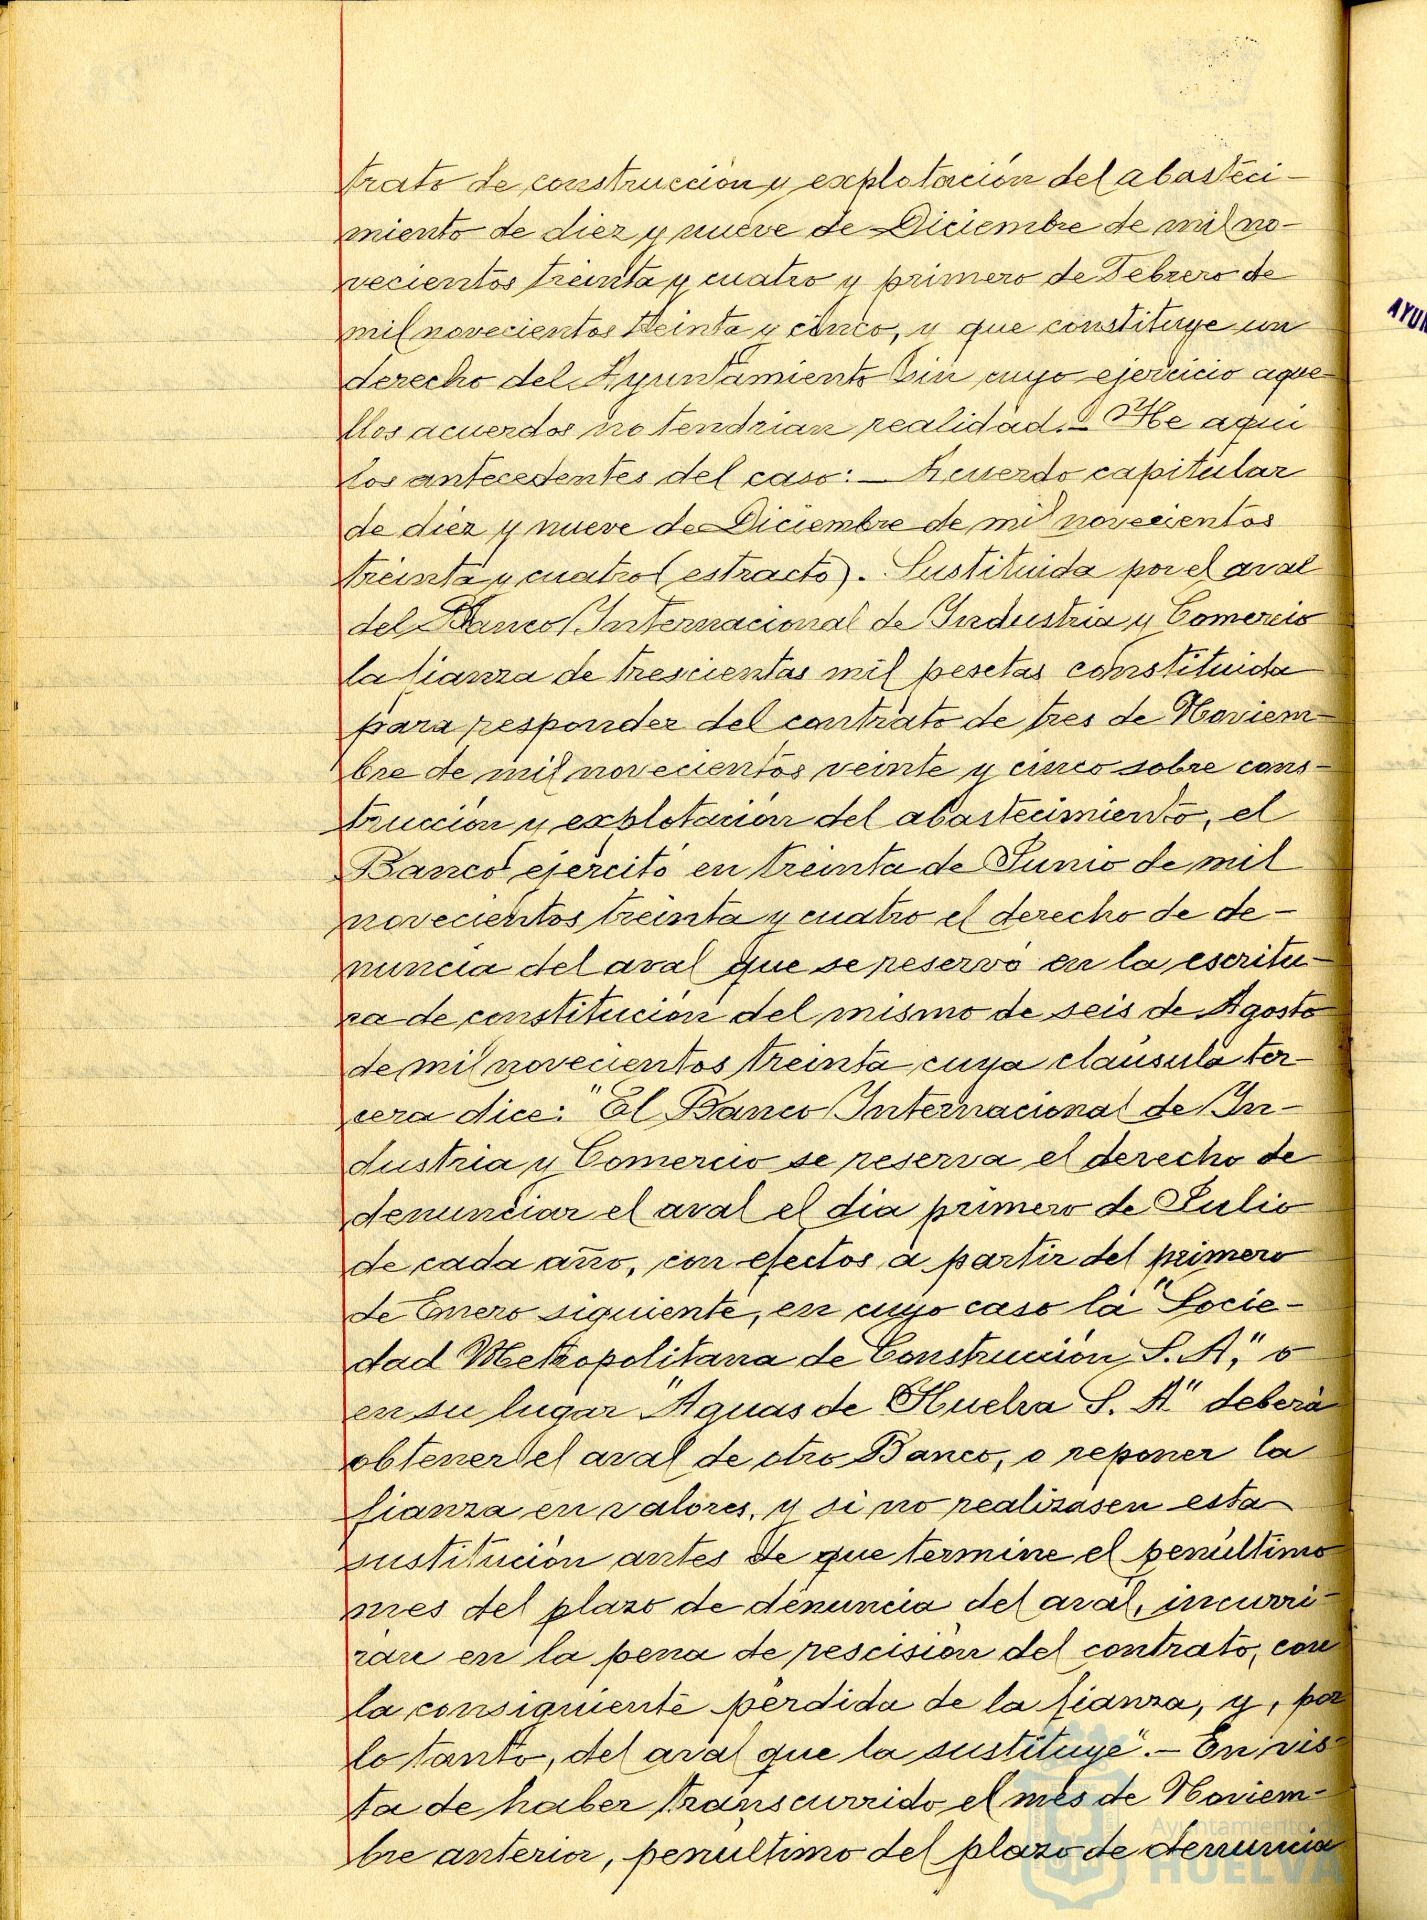 trato de construcción y explotación del abasteci-
miento de diez y nueve de Diciembre de mil no-
vecientos treinta y cuatro y primero de Febrero de
mil novecientos treinta y cinco, y que constituye un
derecho del Ayuntamiento sin cuyo ejercicio aque-
llos acuerdos no tendrian realidad.- He aqui
los antecedentes del caso: — Acuerdo capitular
de diez y nueve de Diciembre de mil novecientos
treinta y cuatro (estracto). Sustituida por el aval
del Banco Internacional de Industria y Comercio
la fianza de trescientas mil pesetas constituida
para responder del contrato de tres de Noviem-
bre de mil novecientos veinte y cinco sobre cons-
trucción y explotación del abastecimiento, el
Banco ejercitó en treinta de Junio de mil
novecientos treinta y cuatro el derecho de de-
nuncia del aval que se reservó en la escritu-
ra de constitución del mismo de seis de Agosto
de mil novecientos treinta cuya claúsula ter-
cera dice: "El Banco Internacional de In-
dustria y Comercio se reserva el derecho de
denunciar el aval el dia primero de Julio
de cada año, con efectos a partir del primero
de Enero siguiente, en cuyo caso la "Socie-
dad Metropolitana de Construcción, S. A," o
en su lugar "Aguas de Huelva S. A" deberá
obtener el aval de otro Banco, o reponer la
fianza en valores, y si no realizasen esta
sustitución antes de que termine el penúltimo
mes del plazo de denuncia del aval, incurri-
ran en la pena de rescisión del contrato, con
la consiguiente pérdida de la fianza, y, por
lo tanto, del aval que la sustituye".- En vis-
ta de haber transcurrido el més de Noviem-
bre anterior, penultimo del plazo de denuncia
AYUN
Ayuntamiento de
HUELVA